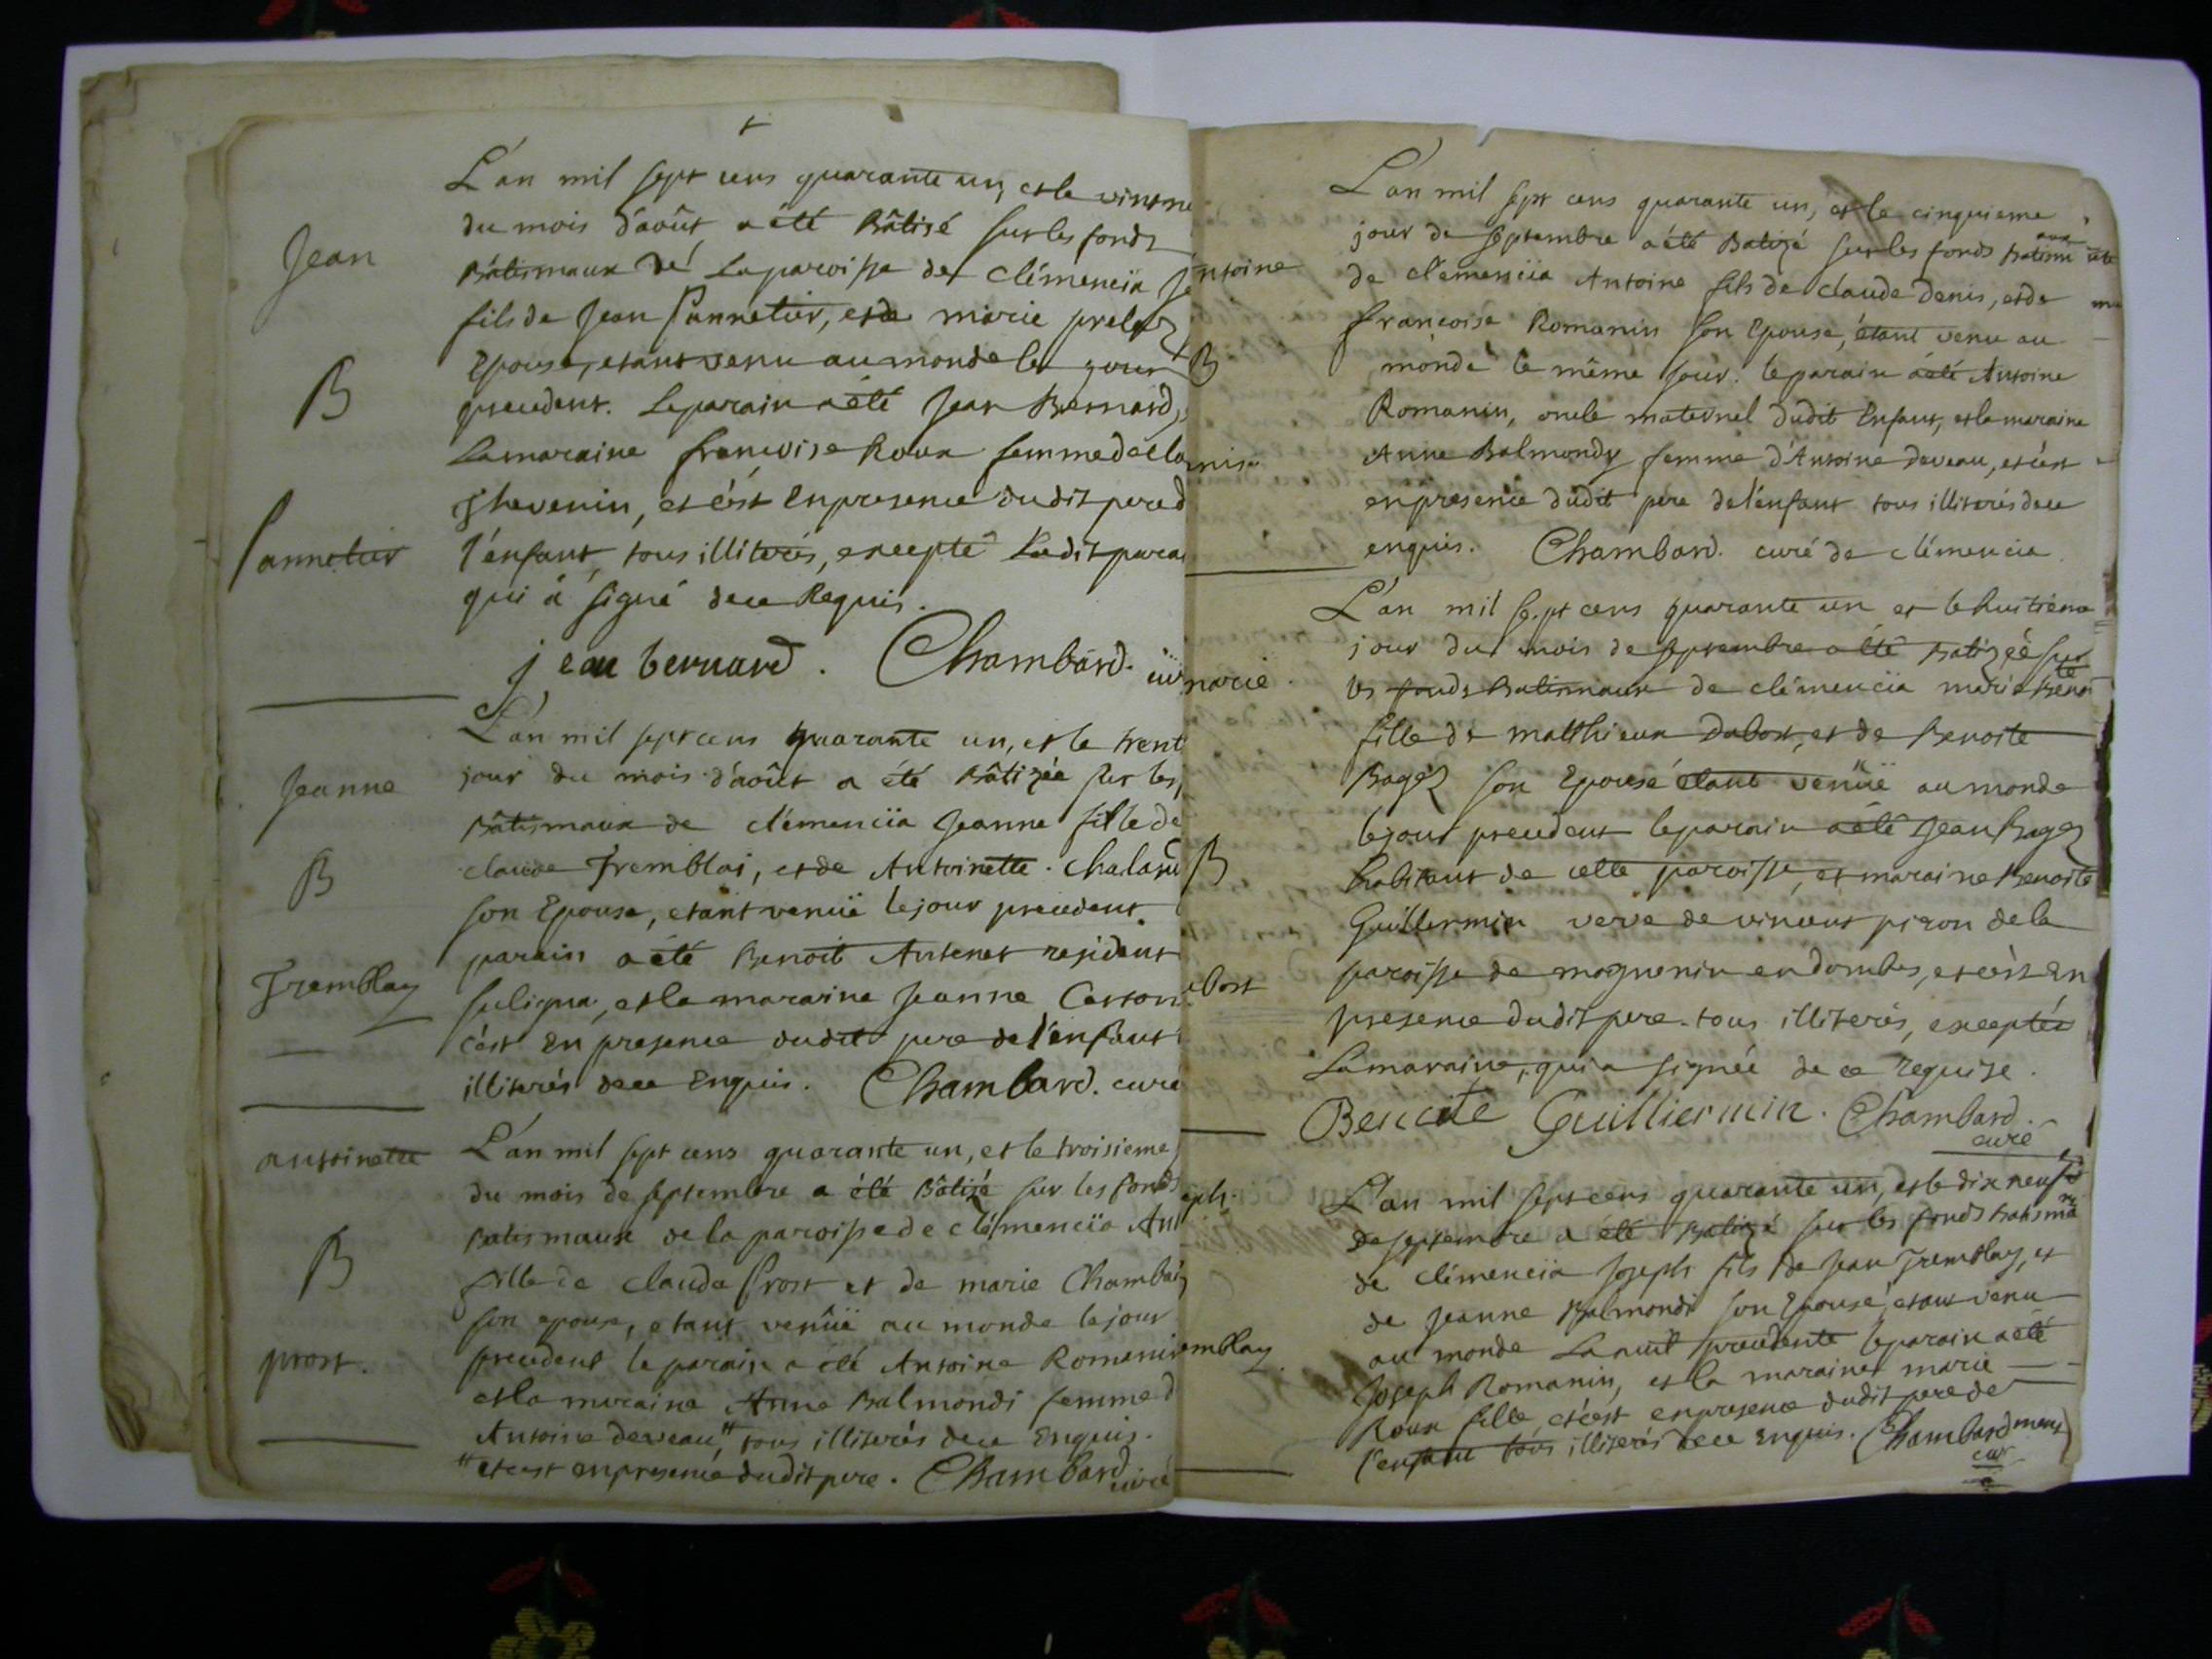 L'an mil sept cens quarante un, et le
du mois d'août, a été Bâtisé sur les fonds
Jean
Bâtismaux de la paroisse de Clémencia
fils de Jean Pannetier, et de marie
Epouse, etant venu au monde le jour
B
precedent. Le parain a été Jean Bernard,
La maraine francoise Roux femme de
Thevenin, et c'est En presence dudit pere d
Pannetier
l'enfant, tous illiterés, excepté Ledit
qui a signé de ce Requis.
jean bernard. Chambard.
L'an mil sept cens quarante un, et le
Jeanne
jour du mois d'août a été Bâtizée sur les
Bâtismaux de clémencia Jeanne fille de
claude Tremblai, et de Antoinette
B
son Epouse, etant venuë le jour precedent.
parain a été Benoit Antenet resident
Tremblay
Suligna, et la maraine Jeanne
c'est En presence dudit pere de l'enfant
illiterés de ce Enquis. Chambard. curé
antoinette
L'an mil sept cens quarante un, et le troisieme
du mois de septembre a été Bâtizé sur les fonds
Batismaux de la paroisse de clémencia
B
fille de claude Prost et de marie
son epouse, etant venuë au monde le jour
prost.
precedent le parain a été Antoine
et la maraine Anne Balmondi femme d
Antoine deveau" tous illiterés de ce Enquis.
" et c'est en presence dudit pere. Chambard curé
L'an mil sept cens quarante un, et le cinquieme
jour de septembre a été Batizé sur les fonds
de clémencia Antoine fils de claude denis, et de
françoise Romanin son Epouse, étant venu au
B
monde le même jour. le parain a été Antoine
Romanin, oncle maternel dudit Enfant, et la maraine
Anne Balmondy femme d'Antoine deveau, et c'est
en presence dudit pere de l'enfant tous illiterés de ce
enquis. Chambard. curé de clémencia
L'an mil sept cens quarante un et le huitieme
jour du mois de septembre a été batizéé sur
les fonds Batismaux de clémencia marie
fille de matthieux Dubost, et de Benoite
Bagez son Epouse étant venuë au monde
le jour precedent le parain a été Jean Bagez
B
habitant de cette paroisse, et maraine Benoite
Guillermin veve de vincent piron de la
paroisse de mognenin en dombes, et c'est en
presence dudit pere. tous illiterés, exceptés
La maraine, qui a signéé de ce requise.
Benoite Guilliermin. Chambard.
curé
L'an mil sept cens quarante un, et le dix
de septembre a été Batizé sur les fonds
de Clémencia Joseph fils de Jean Tremblay, et
de Jeanne Balmondi son Epouse, etant venu
au monde La nuit precedente le parain a été
Joseph Romanin, et la maraine marie
Roux fille, et c'est en presence dudit pere de
l'enfant tous illiterés de ce enquis. Chambard